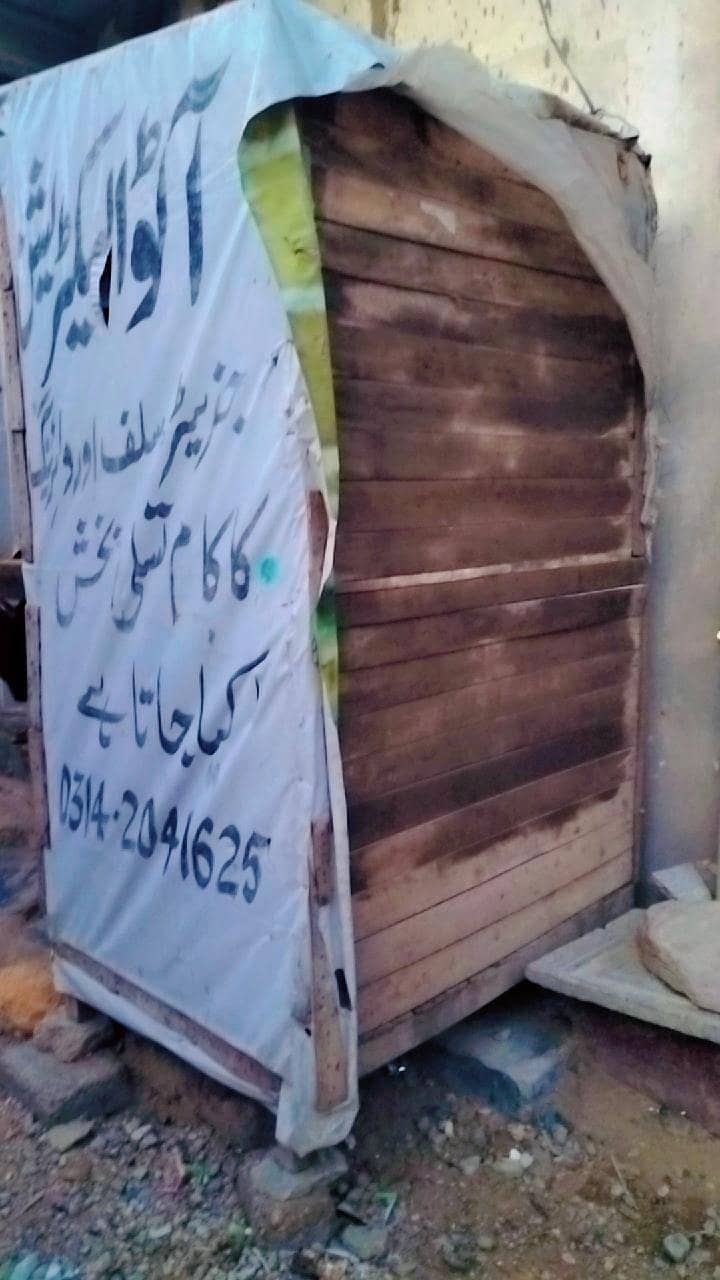 آٹو الیکٹریشن
جنریٹر سلف اور وائرنگ
کا کام تسلی بخش
کیا جاتا ہے
0314-2041625